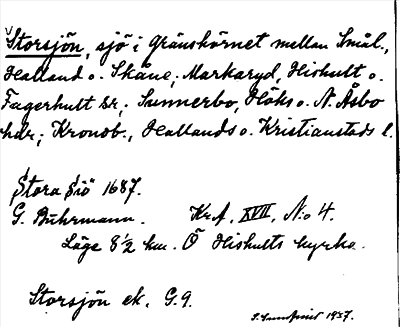 Storsjön, sjö i gränshörnet mellan Smål.,
Halland o. Skåne; Markaryd, Hishult o.
Fagerhult sr; Sunnerbo, Höks o. N. Åsbo
hdr; Kronob., Hallands o. Kristianstads l.
Stora Siö 1687.
G. Buhrmann. Kr.A. XVII, No 4.
Läge 8 1/2 km. Ö Hishults kyrka.
Storsjön ek. G.9.
1937.